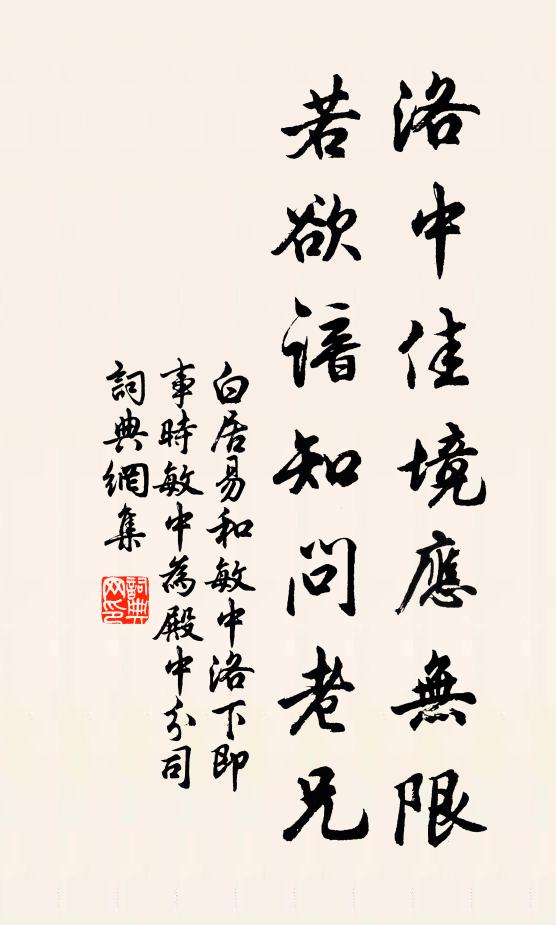 洛中佳境應無限
若欲諳知問老兄
白居易和敏中洛下即
事時敏中為殿中分司
詞典網集
詞典網印